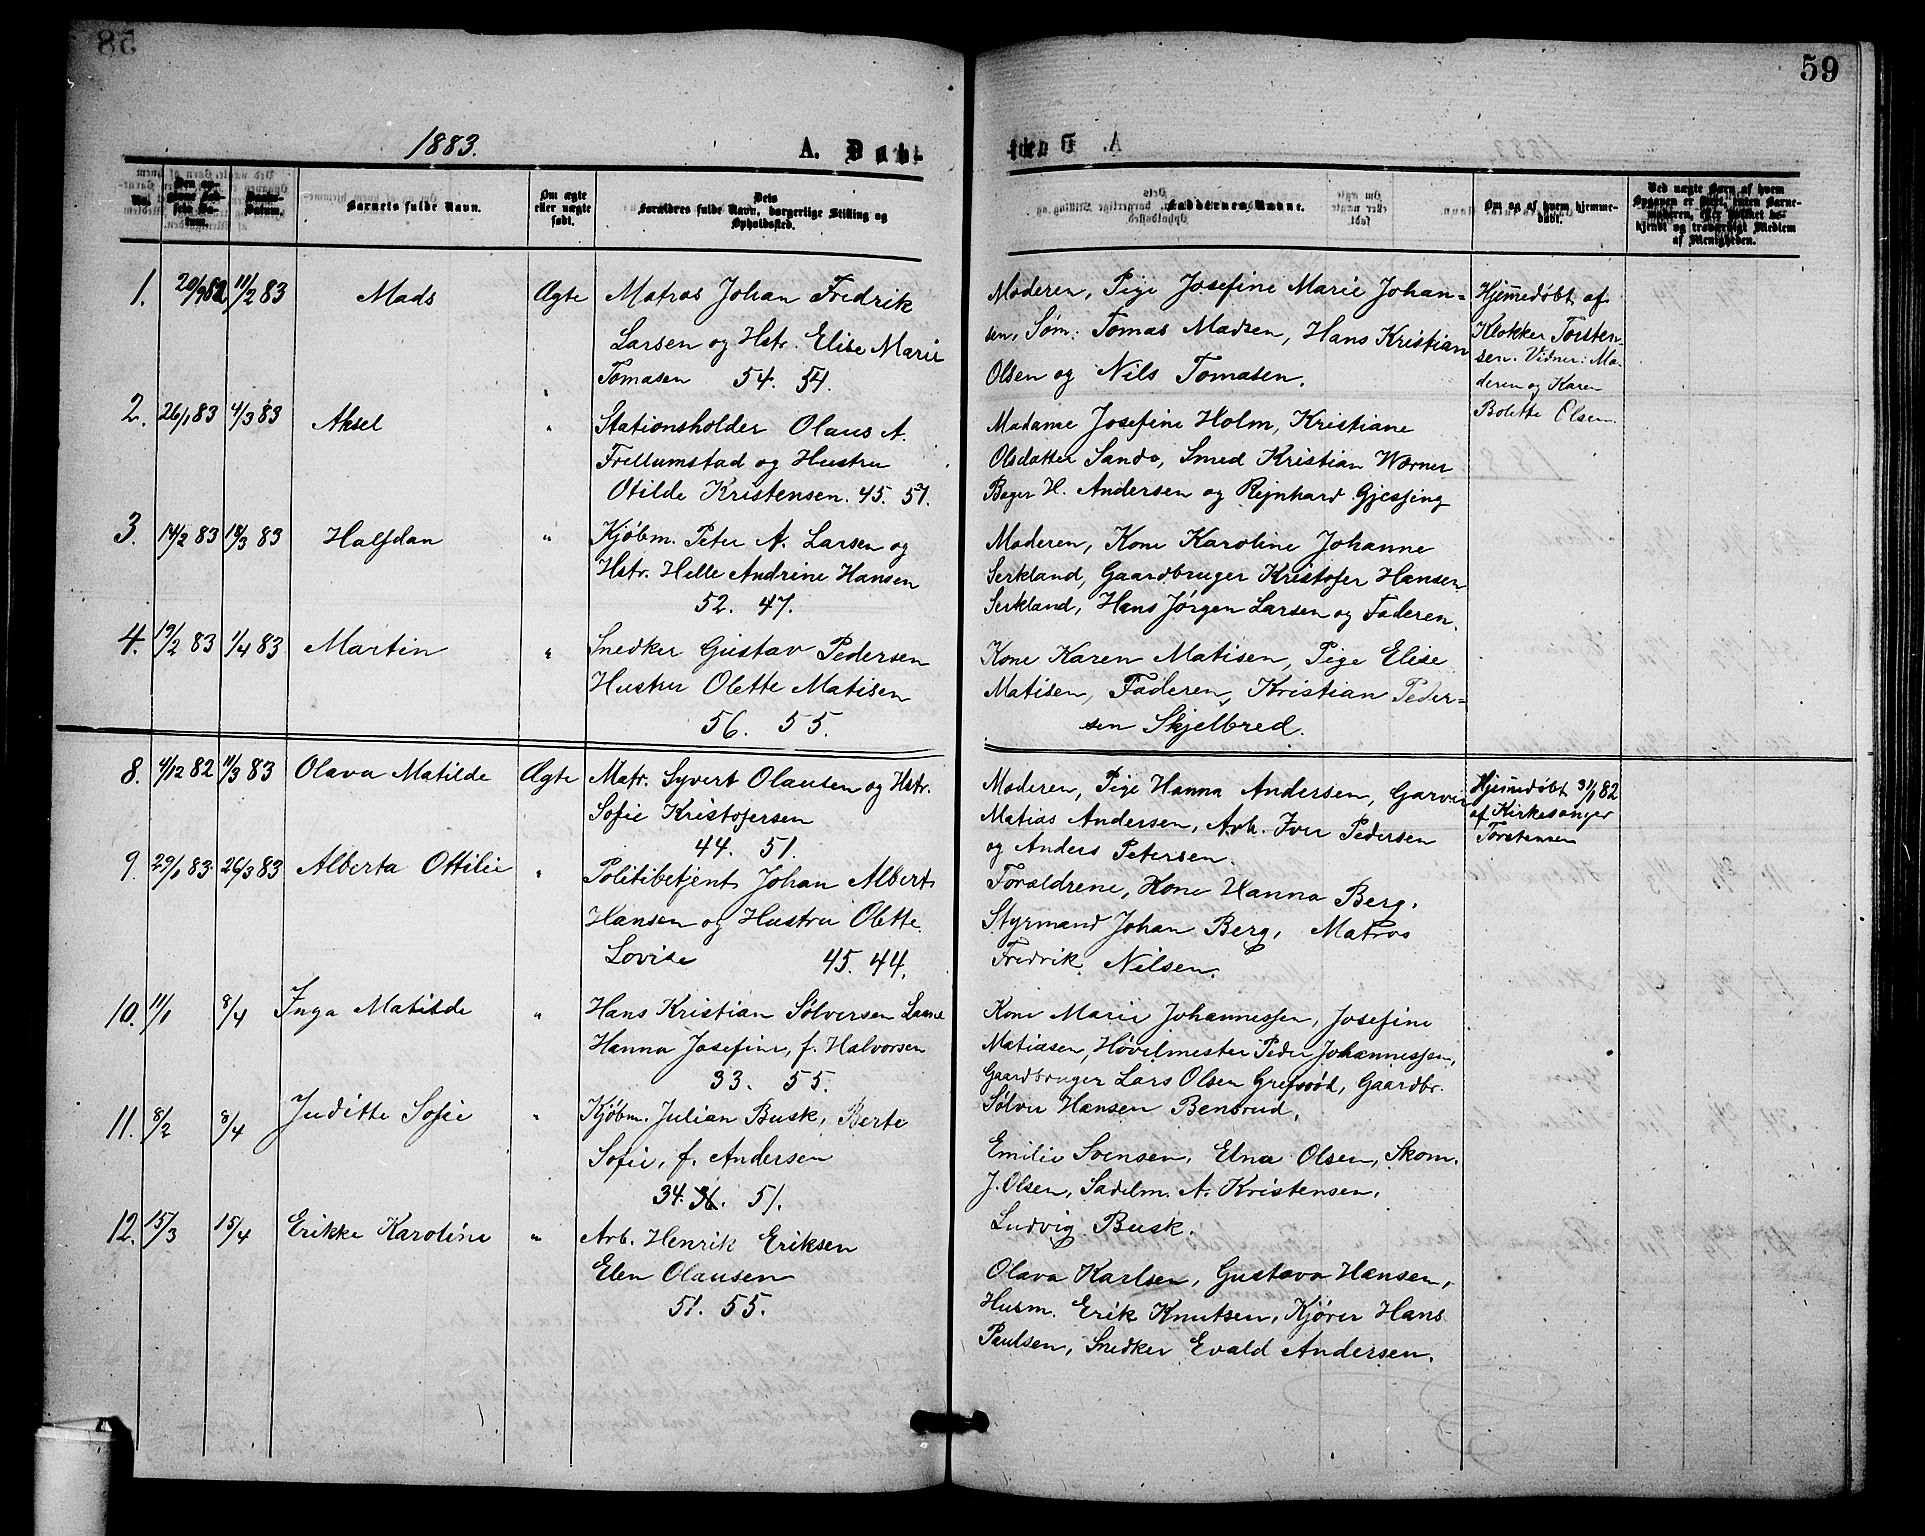 59
1883.
A. Døbte
No.
Barnets fulde Navn.
Om ægte eller uægte født.
Dets Forældres fulde Navn, borgerlige Stilling og Opholdssted.
Faddernes Navne.
Om og af hvem hjemmedøbt.
1. 20/9 82 11/2 83 Mads Ægte Matros Johan Fredrik
Larsen og Hstr. Elise Marie
Tomasen 54. 54.
Moderen, Pige Josefine Marie Johan-
sen, Søm: Tomas Madsen, Hans Kristian
Olsen og Nils Tomasen.
Hjemmedøbt af
Klokker Torsten-
sen. Vidner: Mo-
deren og Karen
Bolette Olsen
2. 26/1 83 4/3 83 Aksel " Stationsholder Olaus A.
Frellumstad og Hustru
Otilde Kristensen. 45. 57.
Madame Josefine Holm, Kristiane
Olsdatter Sando, Smed Kristian Wærner
Bager H. Andersen og Rejnhard Gjessing
3. 14/2 83 18/3 83 Halfdan " Kjøbm. Peter A. Larsen og
Hstr. Helle Andrine Hansen
52. 47.
Moderen, Kone Karoline Johanne
Serkland, Gaardbruger Kristofer Hansen
Serkland, Hans Jørgen Larsen og Faderen.
4. 19/2 83 1/4 83 Martin " Snedker Gustav Pedersen
Hustru Olette Matisen
56. 55.
Kone Karen Matisen, Pige Elise
Matisen, Faderen, Kristian Peder-
sen Skjelbred.
8. 4/12 82 11/3 83 Olava Matilde Ægte Matr. Syvert Olausen og Hstr.
Sofie Kristofersen
44. 51.
Moderen, Pige Hanna Andersen, Garver
Matias Andersen, Arb. Iver Pedersen
og Anders Petersen.
Hjemmedøbt 31/1 82
af Kirkesanger
Torstensen
9. 29/1 83 26/3 83 Alberta Ottilie " Politibetjent Johan Albert
Hansen og Hustru Olette
Lovise 45. 44.
Forældrene, Kone Hanna Berg,
Styrmand Johan Berg, Matros
Fredrik Nilsen.
10. 11/1 8/4 Inga Matilde " Hans Kristian Sølversen
Hanna Josefine, f. Halvorsen
33. 55.
Kone Marie Johannessen, Josefine
Matiasen, Høvilmester Peder Johannessen,
Gaardbruger Lars Olsen Grefsrød, Gaardbr.
Sølver Hansen Bensrud.
11. 8/2 8/4 Juditte Sofie " Kjøbm. Julian Busk, Berte
Sofie, f. Andersen
34. 51.
Emilie Svensen, Elna Olsen, Skom.
J. Olsen, Sadelm. A. Kristensen,
Ludvig Busk.
12. 15/3 15/4 Erikke Karoline " Arb. Henrik Eriksen
Elen Olausen
51. 55.
Olava Karlsen, Gustava Hansen,
Husm. Erik Knutsen, Kjører Hans
Paulsen, Snedker Evald Andersen.